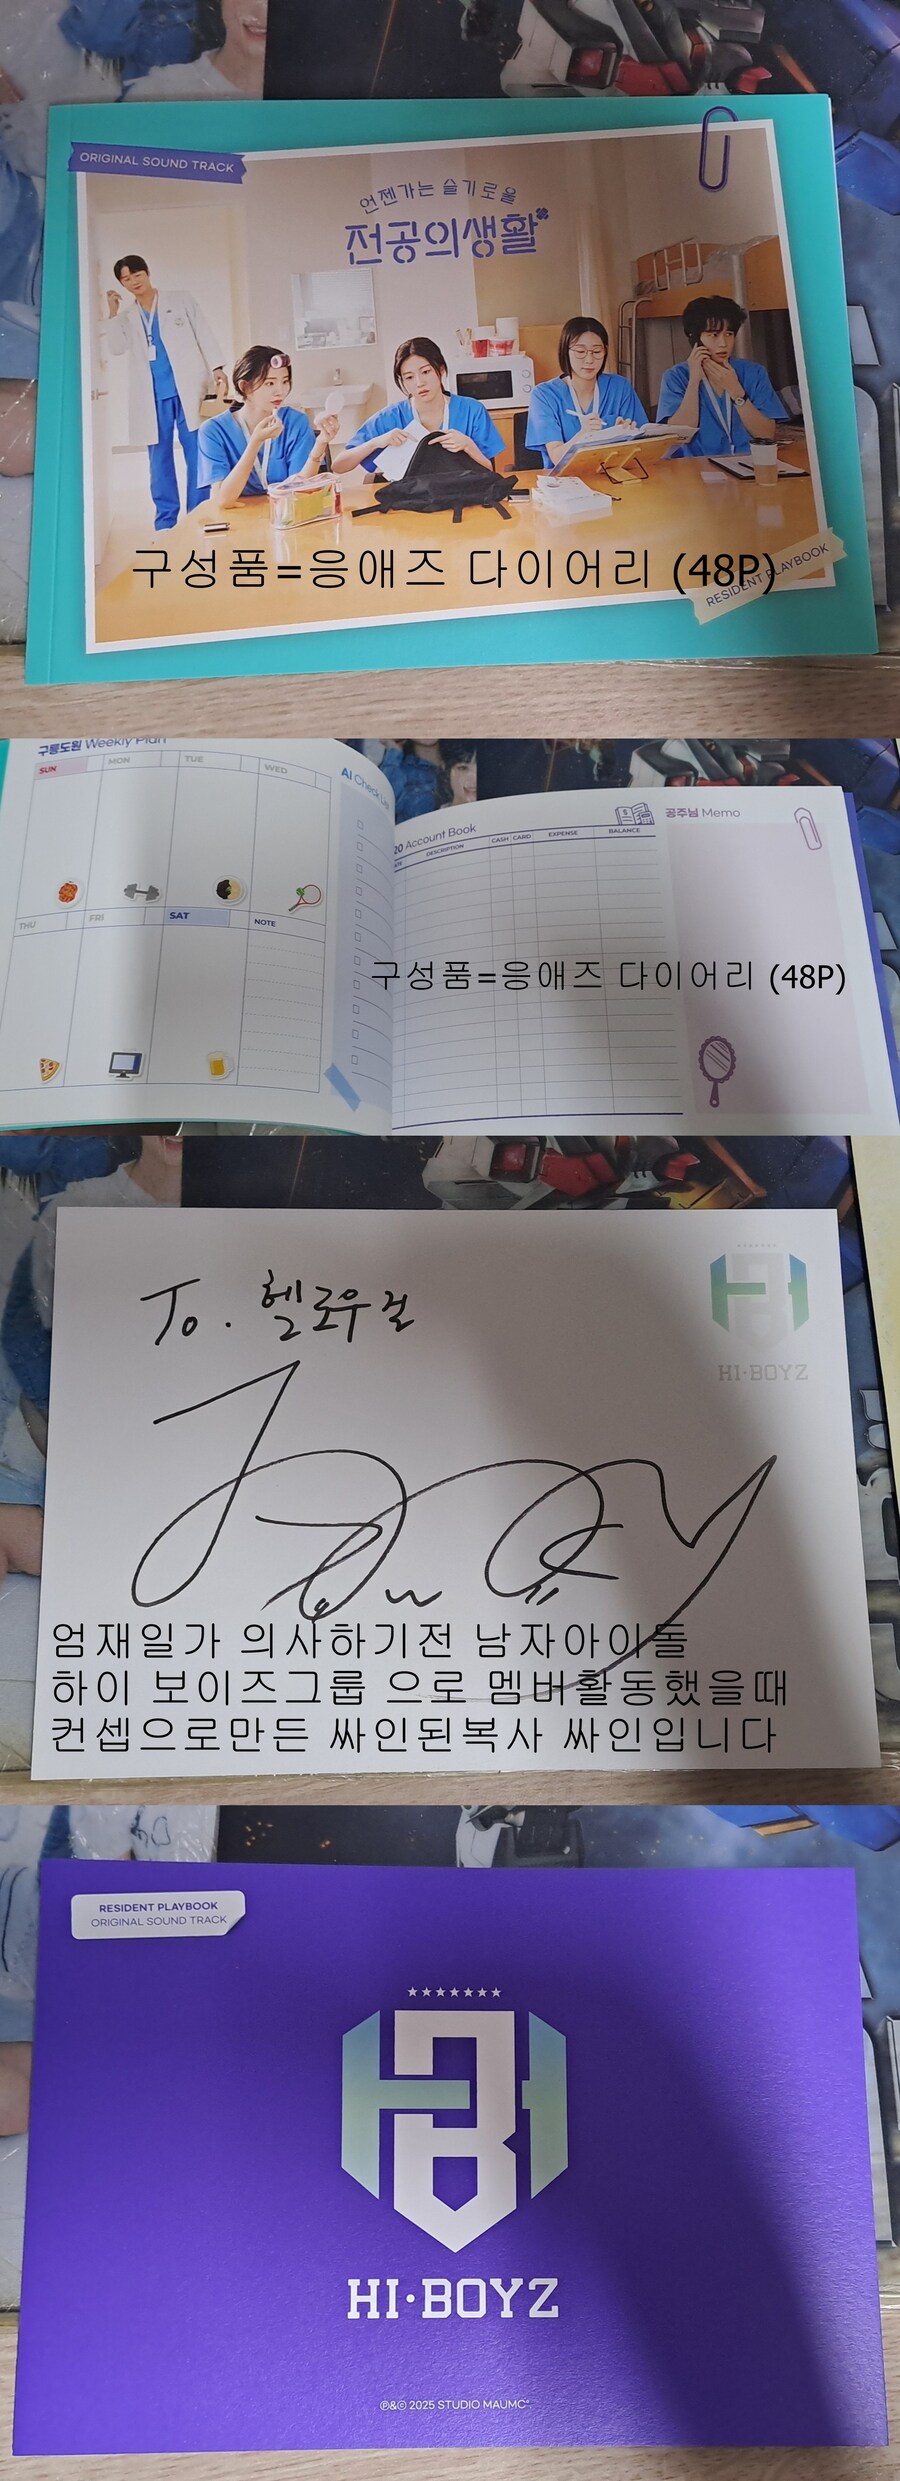 ORIGINAL SOUND TRACK
언젠가는 슬기로울
전공의생활
구성품=응애즈 다이어리 (48P)
RESIDENT PLAYBOOK
구룡도원 Weekly Plan
SUN MON TUE WED
THU FRI SAT NOTE
AI Check List
20 Account Book
DESCRIPTION CASH CARD EXPENSE BALANCE
공주님 Memo
구성품=응애즈 다이어리 (48P)
To. 헬로우걸
HI·BOYZ
엄재일가 의사하기전 남자아이돌
하이 보이즈그룹 으로 멤버활동했을때
컨셉으로만든 싸인된복사 싸인입니다
RESIDENT PLAYBOOK
ORIGINAL SOUND TRACK
HI·BOYZ
℗&© 2025 STUDIO MAUMC